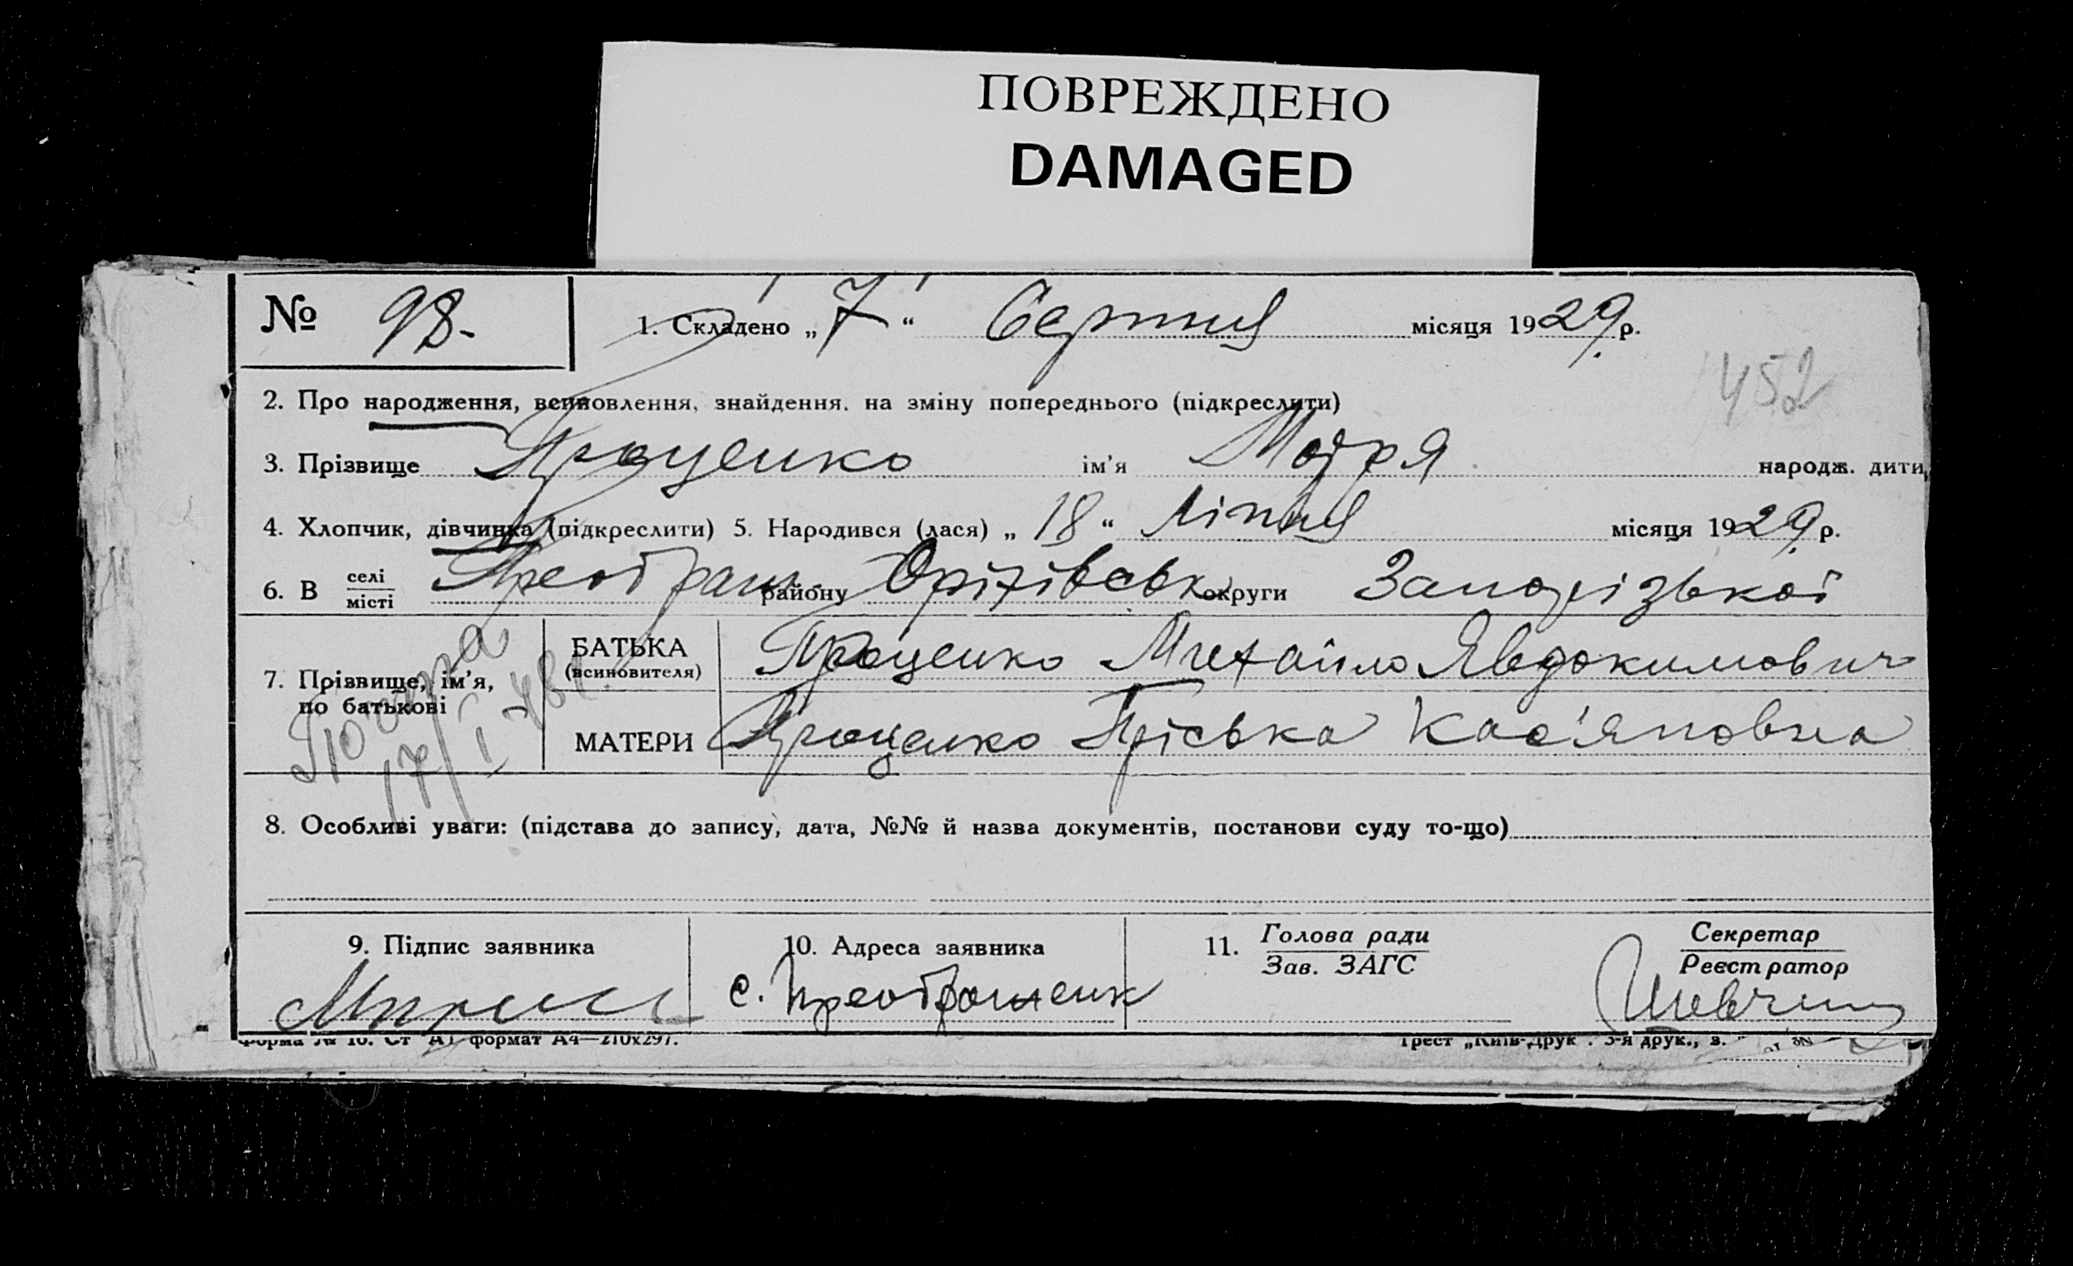 ПОВРЕЖДЕНО
DAMAGED
№ 98.
1. Складено „7“ Серпня місяця 1929 р.
452
2. Про народження, всиновлення, знайдення, на зміну попереднього (підкреслити)
3. Прізвище Проценко ім’я Мотря народж. дити
4. Хлопчик, дівчинка (підкреслити) 5. Народився (лася) „18“ Ліпня місяця 1929 р.
6. В селі місті Преображ. району Оріхівськ округи Запорізької
7. Прізвище, ім’я, по батькові
БАТЬКА (всиновителя) Проценко Михайло Явдокимович
МАТЕРИ Проценко Пріська Кас’яновна
17/I
8. Особливі уваги: (підстава до запису, дата, №№ й назва документів, постанови суду то-що)
9. Підпис заявника
10. Адреса заявника
с. Преображенк
11. Голова ради
Зав. ЗАГС
Секретар
Реєстратор
Форма № 10. Ст А1 формат А4—210х297.
Трест „Київ-Друк“. 3-я друк., з.